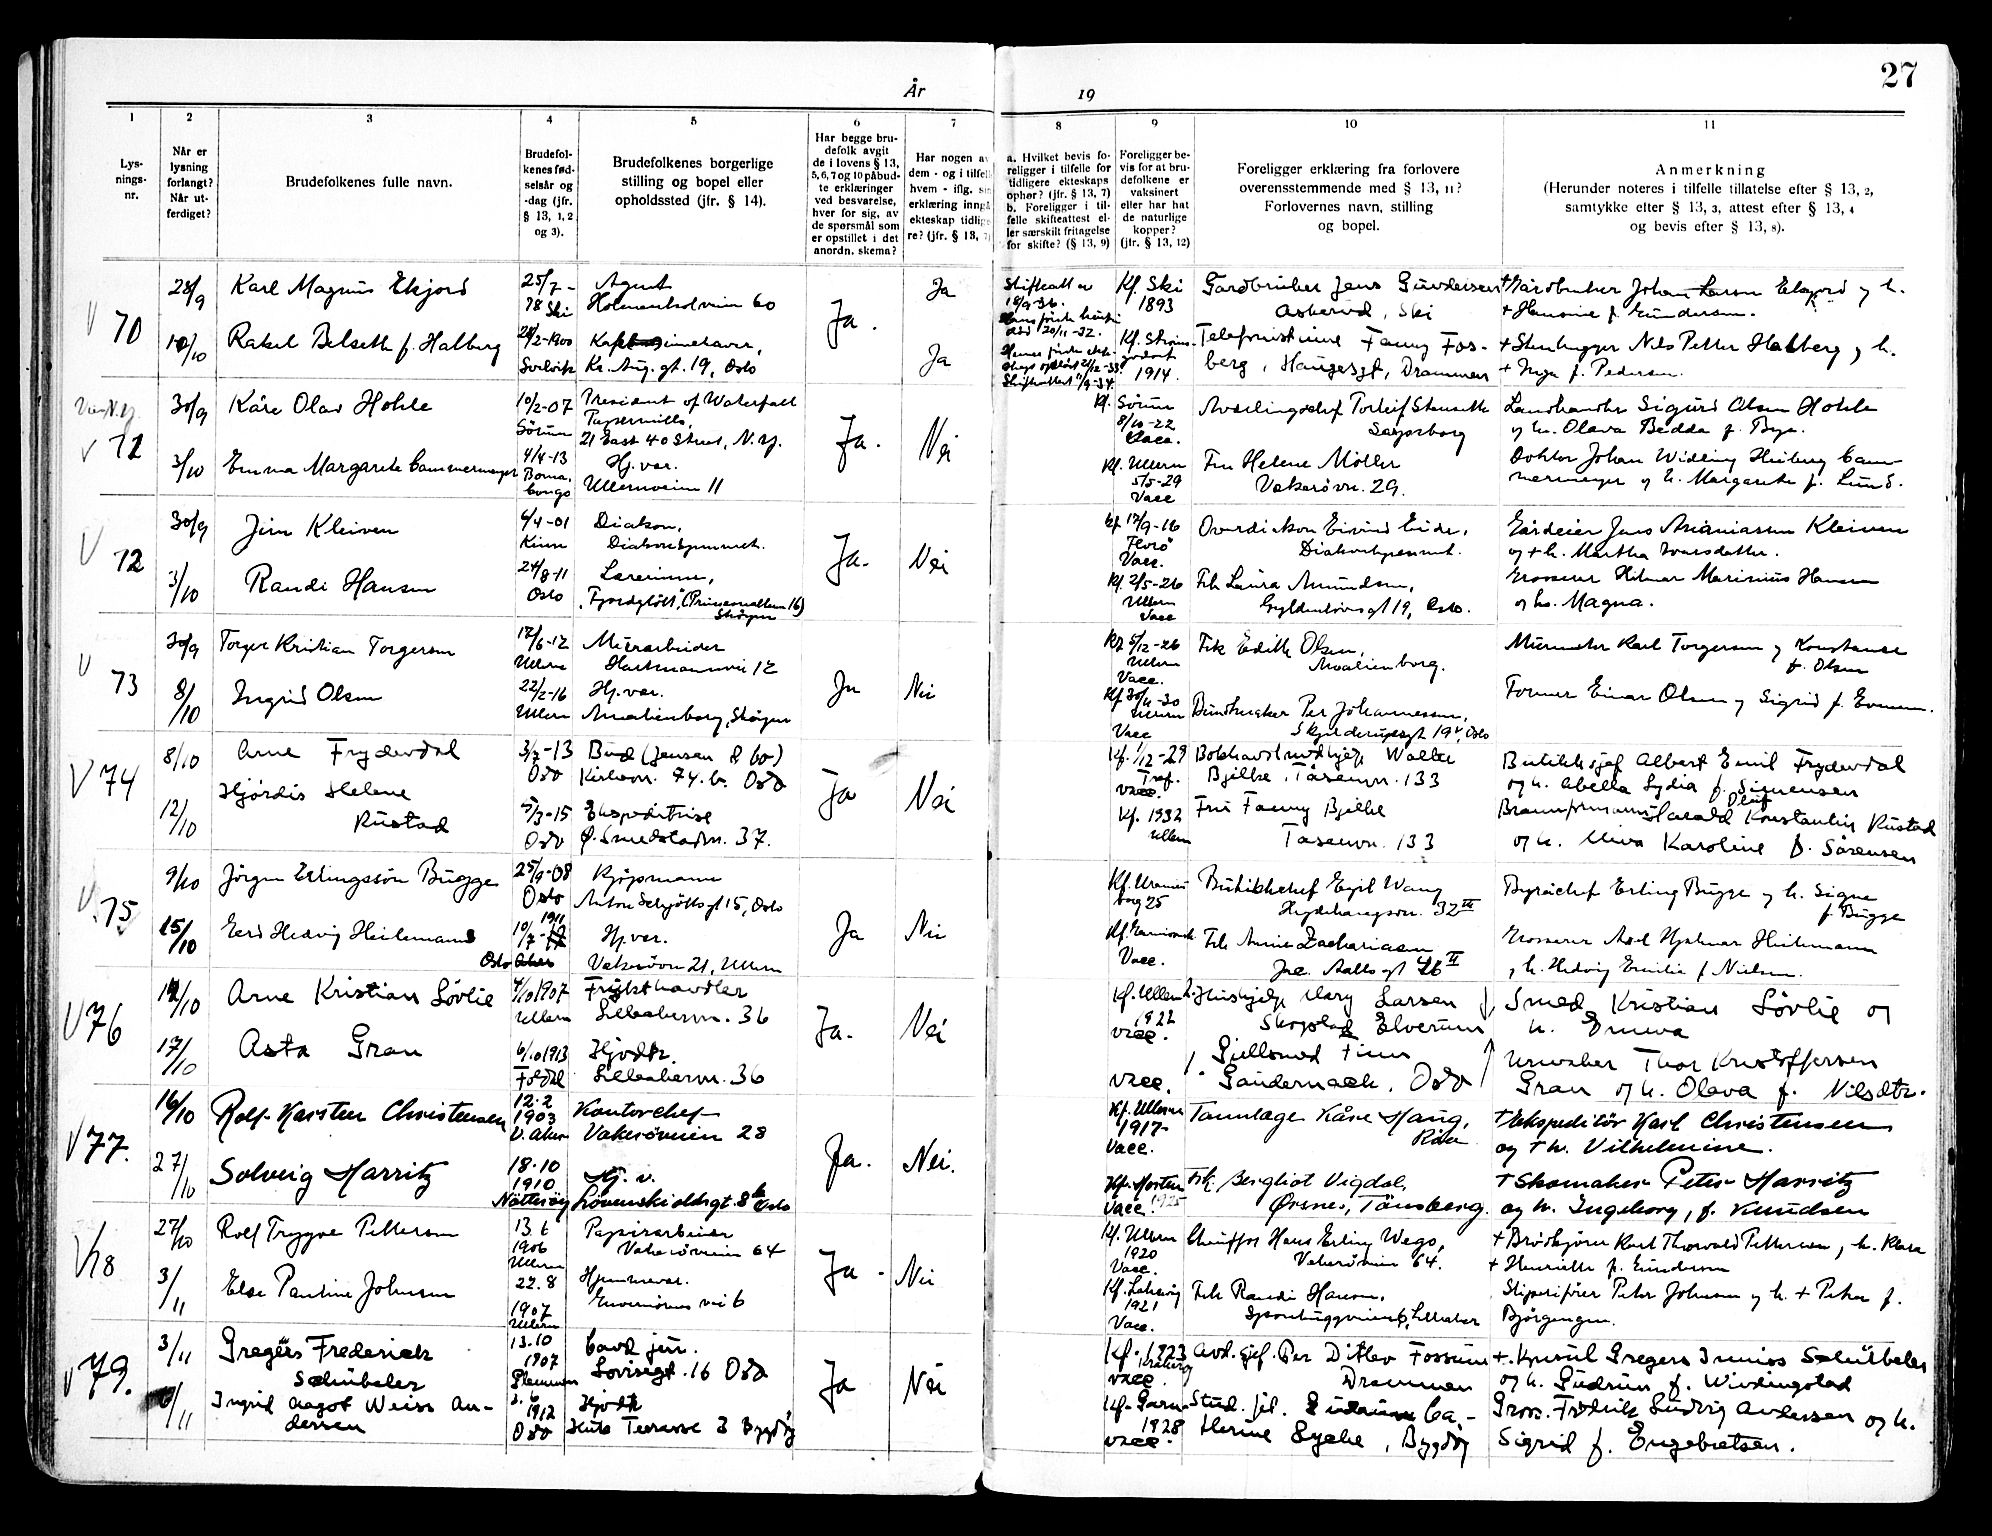 27
År
19
1
2
3
4
5
6
7
8
9
10
11
Lys-
nings-
nr.
Når er
lysning
forlangt?
Når ut-
ferdiget?
Brudefolkenes fulle navn.
Brudefol-
kenes fød-
selsår og
-dag (jfr.
§ 13, 1, 2
og 3).
Brudefolkenes borgerlige
stilling og bopel eller
opholdssted (jfr. § 14).
Har begge bru-
defolk avgit
de i lovens § 13,
5, 6, 7 og 10 påbud-
te erklæringer
ved besvarelse,
hver for sig, av
de spørsmål som
er opstillet i det
anordn. skema?
Har nogen av
dem - og i tilfelle
hvem - iflg. sin
erklæring inngå
ekteskap tidlige-
re? (jfr. § 13, 7)
a. Hvilket bevis fo-
religger i tilfelle for
tidligere ekteskaps
ophør? (jfr. § 13, 7)
b. Foreligger i til-
felle skifteattest el-
ler særskilt fritagelse
for skifte? (§ 13, 9)
Foreligger be-
vis for at bru-
defolkene er
vaksinert
eller har hat
de naturlige
kopper?
(jfr. § 13, 12)
Foreligger erklæring fra forlovere
overensstemmende med § 13, 11?
Forlovernes navn, stilling
og bopel.
Anmerkning
(Herunder noteres i tilfelle tillatelse efter § 13, 2,
samtykke efter § 13, 3, attest efter § 13, 4
og bevis efter § 13, 8).
V 70
28/9
Karl Magnus Ekjord
25/7-
78 Ski
Agent
Holmenkolveien 60
Ja.
Ja
Skifteattest
Kf. Ski
1893
Gardbruker Jens Gundersen
Askerud, Ski
+ Gårdbruker Johan Larsen Ekjord og h.
+ Hansine f. Gundersen.
10/10
Rakel Belseth f. Halberg
-1900
Svelvik
Kr. Aug. gt. 19, Oslo
Ja
1914.
Telefonistinne Fanny Fos-
berg, Haugesgt, Drammen
+ Stenhugger Nils Petter Halberg og h.
+ Inga f. Pedersen.
V 71
30/9
Kåre Olav Hohle
10/2-07
Sörum
President of Waterfall
Papermills,
21 East 40 Street, N.Y.
Ja.
Nei
Kf. Sörum
8/10-22
Vacc.
Avdelingschef Torleif Stenseth
Sarpsborg
Landhandler Sigurd Olsen Hohle
og h. Olava Bedda f. Bye.
3/10
Emma Margarete Cammermeyer
4/4-13
Boma,
Congo
Hj. vær.
Ullernveien 11
Kf. Ullern
5/5-29
Vacc
Fru Helene Möller
Vækerövn. 29.
Doktor Johan Widding Heiberg Cam-
mermeyer og h. Margarete f. Lund.
V 72
30/9
Jim Kleiven
4/4-01
Kinn
Diakon,
Diakonhjemmet.
Ja.
Nei
Kf 17/9-16
Florö
Vacc.
Overdiakon Eivind Eide,
Diakonhjemmet.
Gårdeier Jens Ananiassen Kleiven
og + h. Martha Ivarsdatter.
3/10
Randi Hansen
24/8-11
Oslo
Lærerinne,
"Fjordgløtt", (Prinsessealleen 16)
Skøyen
Kf 2/5-26
Ullern
Vacc
Frk Laura Amundsen,
Gyldenløvesgt 19, Oslo.
Grosserer Hilmar Marinius Hansen
og h. Magna.
V 73
30/9
Torger Kristian Torgersen
17/6-12
Ullern
Murarbeider
Hartmannsvei 12
Ja
Nei
Kf 5/12-26
Ullern
Vacc.
Frk Edith Olsen,
Amalienborg.
Murmester Karl Torgersen og Konstanse
f. Olsen
8/10
Ingrid Olsen
22/2-16
Ullern
Hj. vær.
Amalienborg, Skøyen
Kf 30/11-30
Ullern
Vacc
Buntmaker Per Johannessen,
Former Einar Olsen og Sigrid f. Evensen.
V 74
8/10
Arne Frydendal
3/7-13
Oslo
Bud (Jensen & Co)
Kirkevn. 74.b. Oslo
Ja
Nei
Kf. 1/12-29
Tref.
vacc.
Walter
Bjelke. Tåsenvn. 133
Butikksjef Albert Emil Frydendal
og h. Abella Lydia f. Simensen
12/10
Hjördis Helene
Rustad
5/3-15
Oslo
Ekspeditrise
Ø. Smedstadvn. 37.
Kf. 1932
Ullern
Fru Fanny Bjelke
Tåsenvn. 133
Brannformann Harald Olaf Konstantin Rustad
og h. Alva Karoline f. Sörensen
V. 75
9/10
Jörgen Erlingssön Bugge
25/9-08
Oslo
Kjöpmann
Anton Schjøttsgt 15, Oslo
Ja
Nei
Kf. Uranien-
borg 25
Butikkchef Egil Wang
Heydehaugsvn. 32 III
Byråchef Erling Bugge og h. Signe
f. Bugge
15/10
Gerd Hedvig Heilemann
10/7-1911
Oslo
Hj. vær.
Vækerövn 21, Ullern
Vacc.
Frk Annie Zachariasen
Jac. Aallsgt 46 II
Grosserer Axel Hjalmar Heilemann
og h. Hedvig Emilie f Nielsen.
V 76
12/10
Arne Kristian Lövlie
4/10 1907
Ullern
Frukthandler
Lilleakervn. 36
Ja.
Nei
Kf. Ullern
1922
vacc.
Hushjelp Mary Larsen
Skogstad Elverum
Smed Kristian Lövlie og
h. Emma
17/10
Asta Gran
6/10 1913
Foldal
Hjvdtr.
Lilleakervn. 36
vacc.
Gullsmed Finn
Gaudernack, Oslo
Urmaker Thor Kristoffersen
Gran og h. Olava f. Nilsdtr.
V 77.
16/10
Rolf Karsten Christensen
12.2
1903
V. Aker
Kontorchef
Vækeröveien 28
Ja.
Nei.
Kf. Ullern
1917
Vacc.
Tannlæge Kåre Haug,
Röa
+ Ekspeditör Karl Christensen
og + h. Vilhelmine.
27/10
Solveig Marritz
18.10
1910
Nötteröy
Hj. v.
Løvenskioldsgt. 8b Oslo
Vacc. 1925
Frk. Bergliot Vigdal,
Ørsnes, Tönsberg.
+ Skomaker Peter Marritz
og h. Ingeborg, f. Knudsen
V 78
27/10
Rolf Trygve Pettersen
13.6
1906
Ullern
Papirarbeider
Vækeröveien 64
Ja.
Nei
Kf. Ullern
1920
Vacc.
Chauffør Hans Erling Wego,
Vækeröveien 64.
+ Brödkjörer Karl Thorvald Pettersen og h. Klara
+ Henriette f. Gundersen
3/11
Else Pauline Johnsen
22.8
1907
Ullern
Hjemmevær.
1921
Vacc.
Frk Randi Hansen,
Sponhuggveien 6, Lilleaker
Skipsfører Peter Johnsen og h. + Petra f.
Bjørgengen.
V 79.
3/11
Gregers Frederick
Schübeler
13.10
1907
Glemmen
Cand. jur.
Lovisegt. 16 Oslo
Ja
Nei
Kf. 1923
vacc.
Avd. sjef. Per Ditlev Fossum
Drammen
+. Konsul Gregers Junius Schübeler
og h. Gudrun f. Windingstad
6/11
Ingrid Aagot Weiss An-
dersen
1912
Oslo
Hjvdtr
Huk Terrasse 3 Bygdöy
Kf. Garn.
1928
vacc.
Stud. fil. Gudrun Ca-
therine Lyche, Bygdöy
Gross. Fredrik Ludvig Andersen og h.
Sigrid f. Engebretsen.